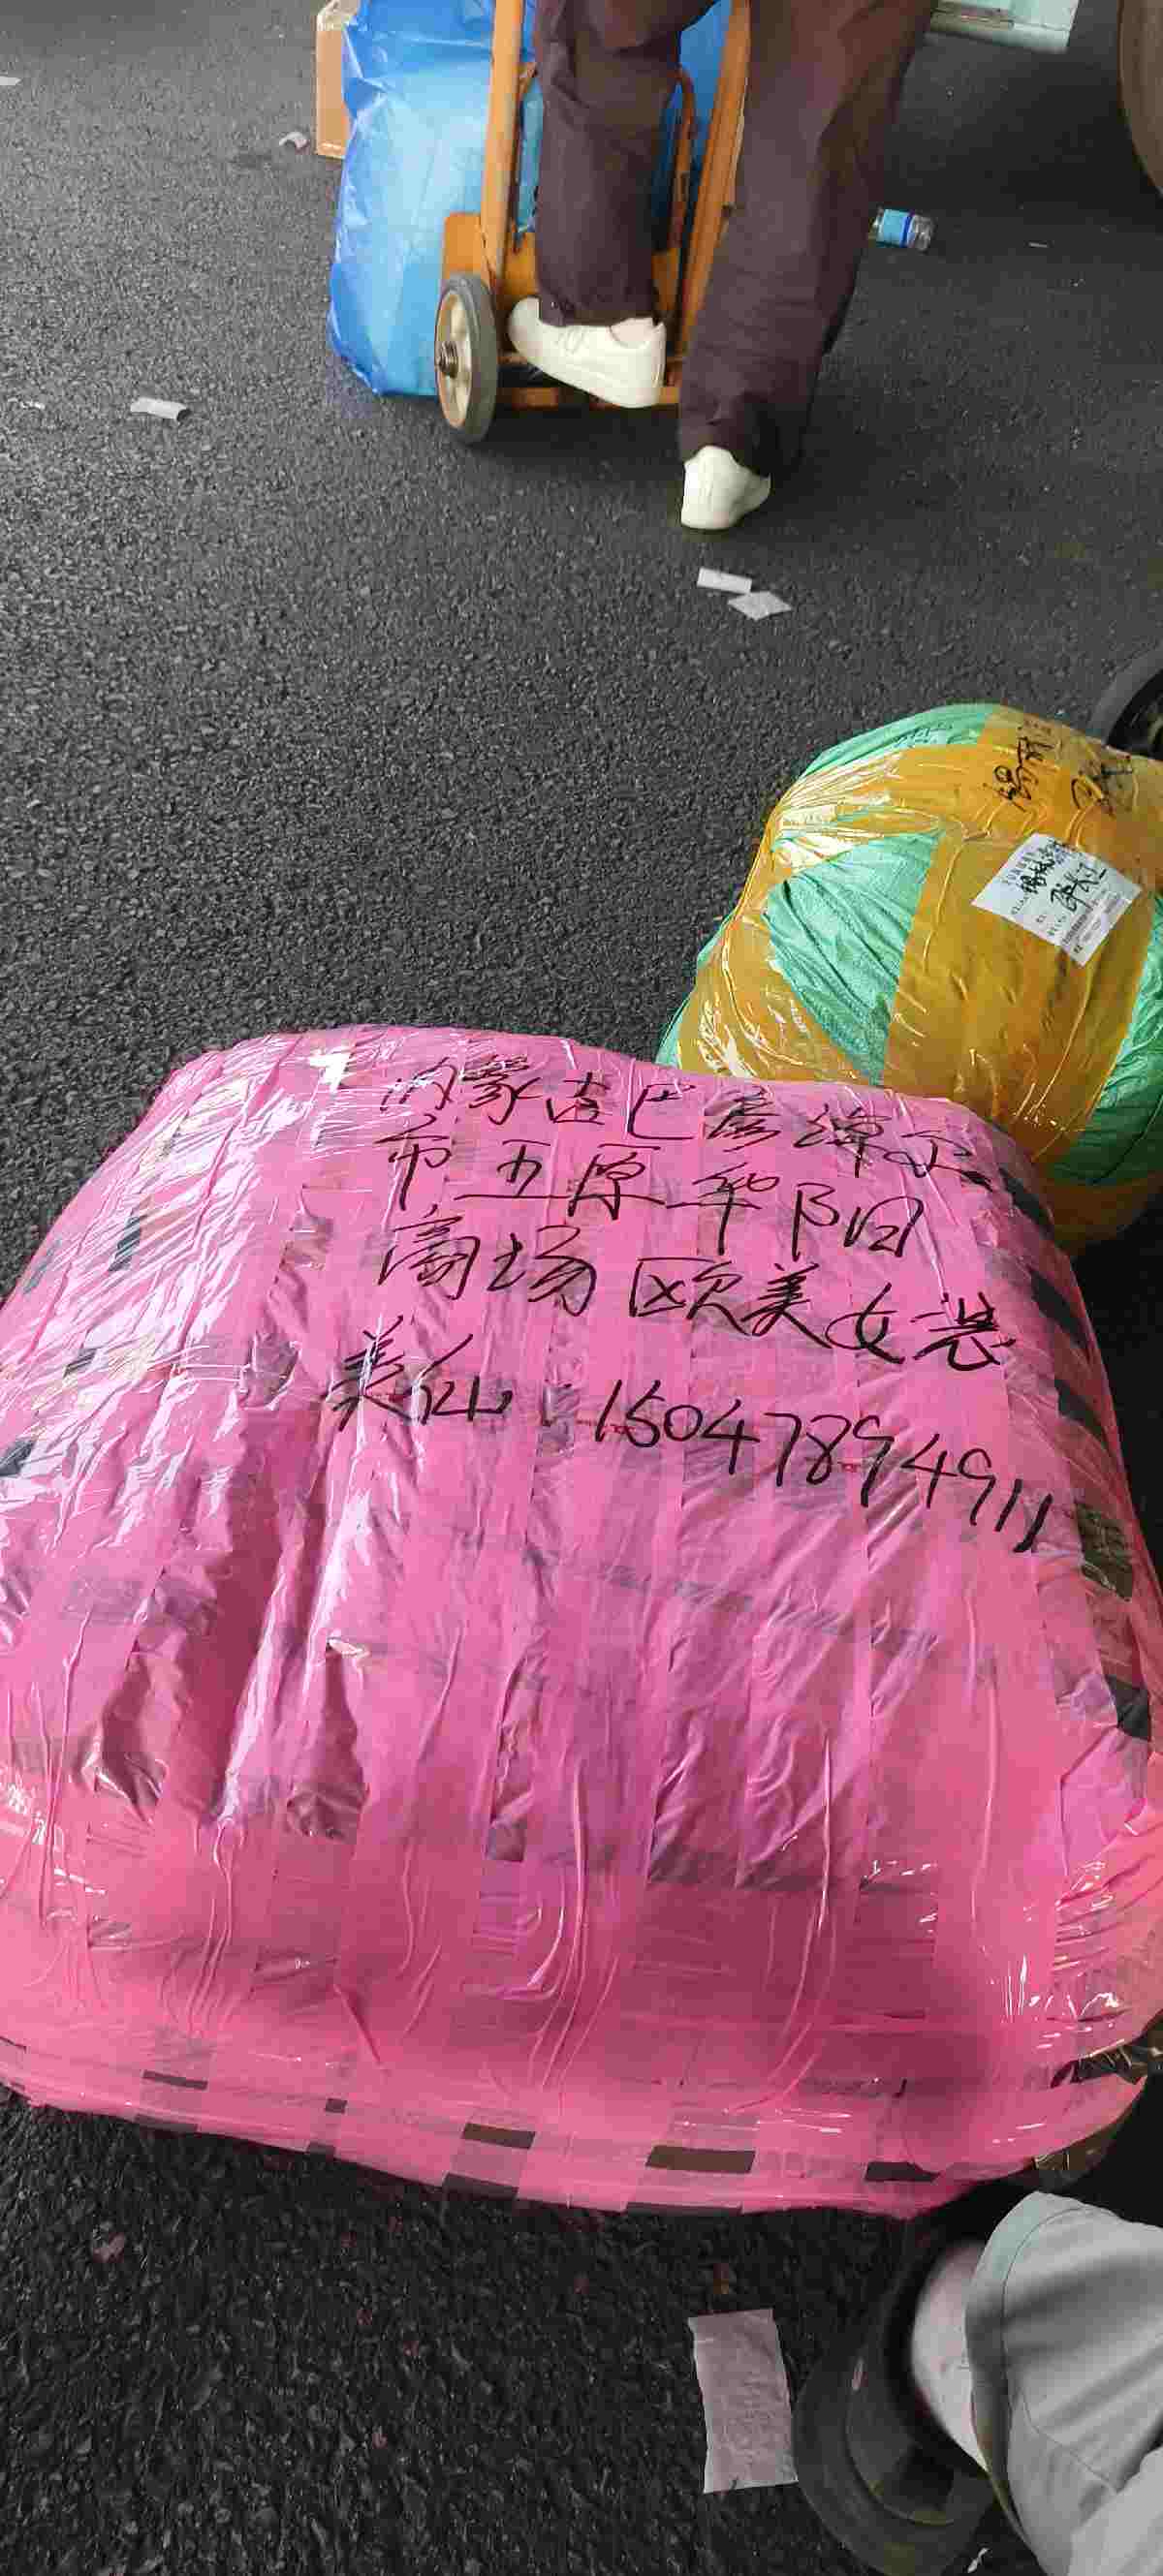 内蒙古巴彦淖尔
市五原华阳
商场 欧美女装
美仙：15047894911